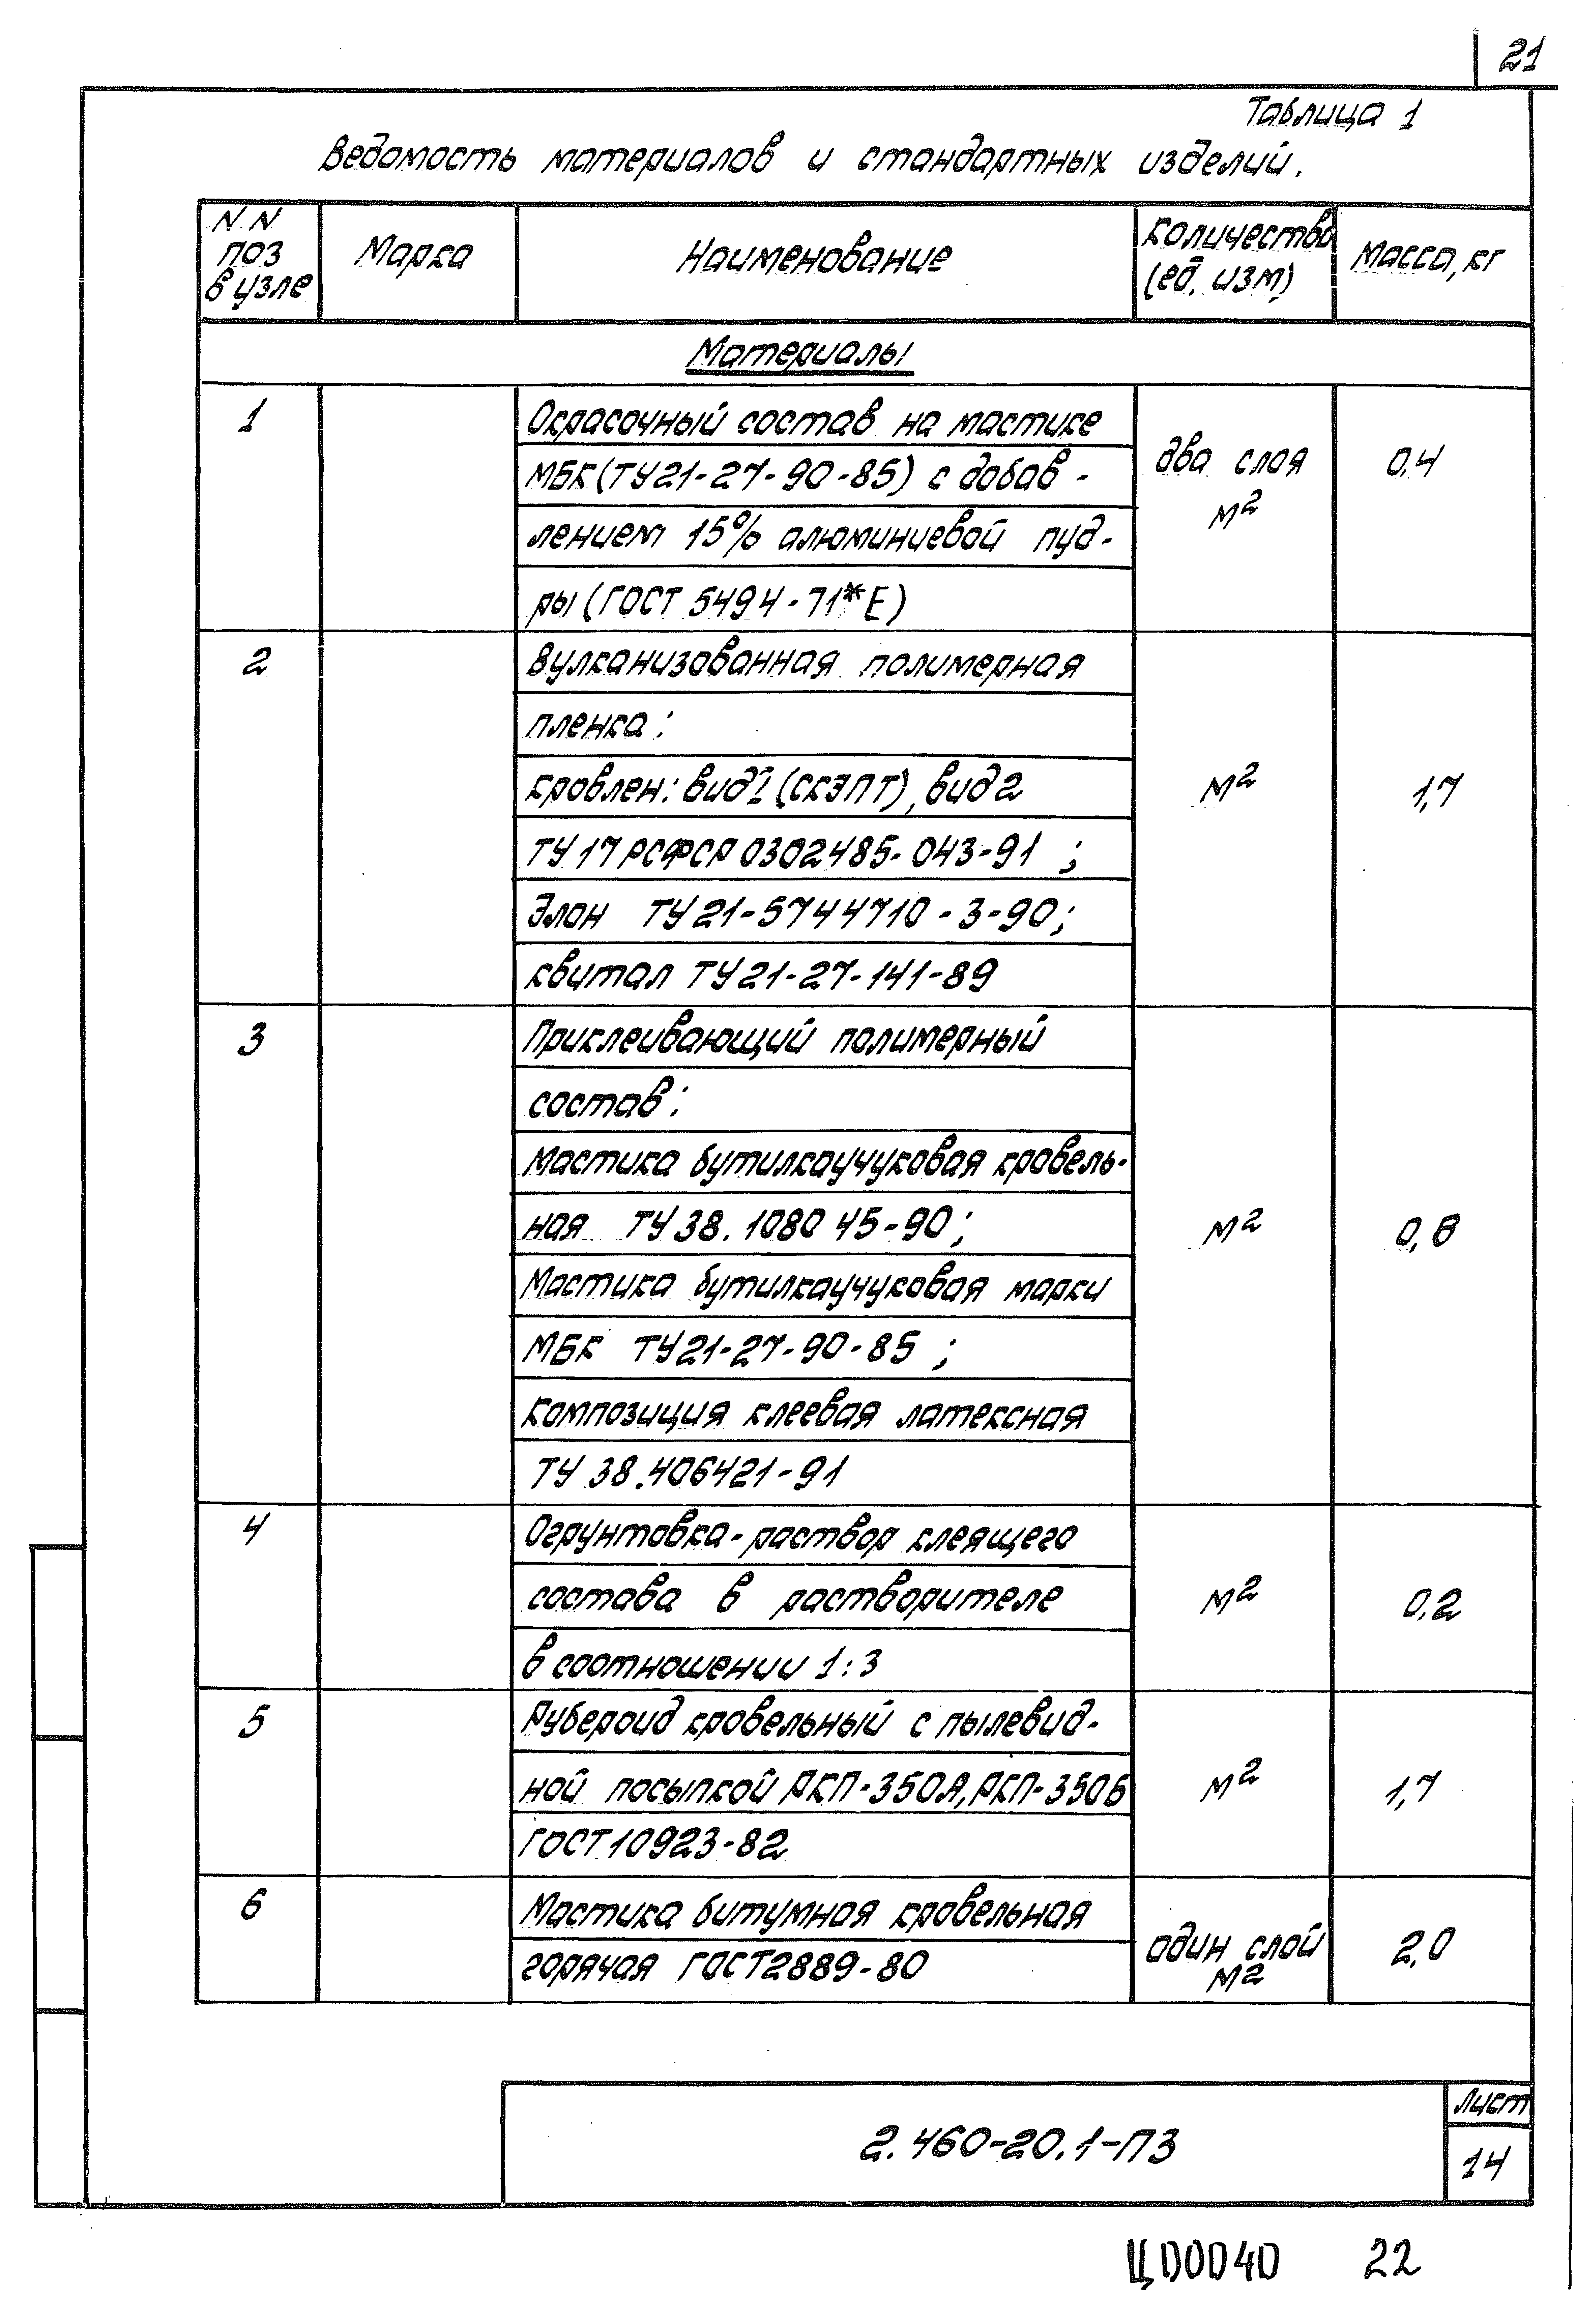 21
Таблица 1
Ведомость материалов и стандартных изделий.
NN
поз
в узле
Марка
Наименование
Количество
(ед. изм)
Масса, кг
Материалы
1
Окрасочный состав на мастике
МБК (ТУ21-27-90-85) с добав-
лением 15% алюминиевой пуд-
ры (ГОСТ 5494-71*Е)
два слоя
м²
0,4
2
Вулканизованная полимерная
пленка:
кровлен: вид 1 (СКЭПТ), вид 2
ТУ 17 РСФСР 0302485-043-91 ;
Элон ТУ 21-5744710-3-90;
квитал ТУ 21-27-141-89
м²
1,7
3
Приклеивающий полимерный
состав:
Мастика бутилкаучуковая кровель-
ная ТУ 38.1080 45-90;
Мастика бутилкаучуковая марки
МБК ТУ21-27-90-85 ;
Композиция клеевая латексная
ТУ 38.406421-91
м²
4
Огрунтовка-раствор клеящего
состава в растворителе
в соотношении 1:3
м²
0,2
5
Рубероид кровельный с пылевид-
ной посыпкой РКП-350А, РКП-350Б
ГОСТ 10923-82
м²
1,7
6
Мастика битумная кровельная
горячая ГОСТ 2889-80
один слой
м²
2,0
2.460-20.1-ПЗ
Лист
14
ЦД0040 22